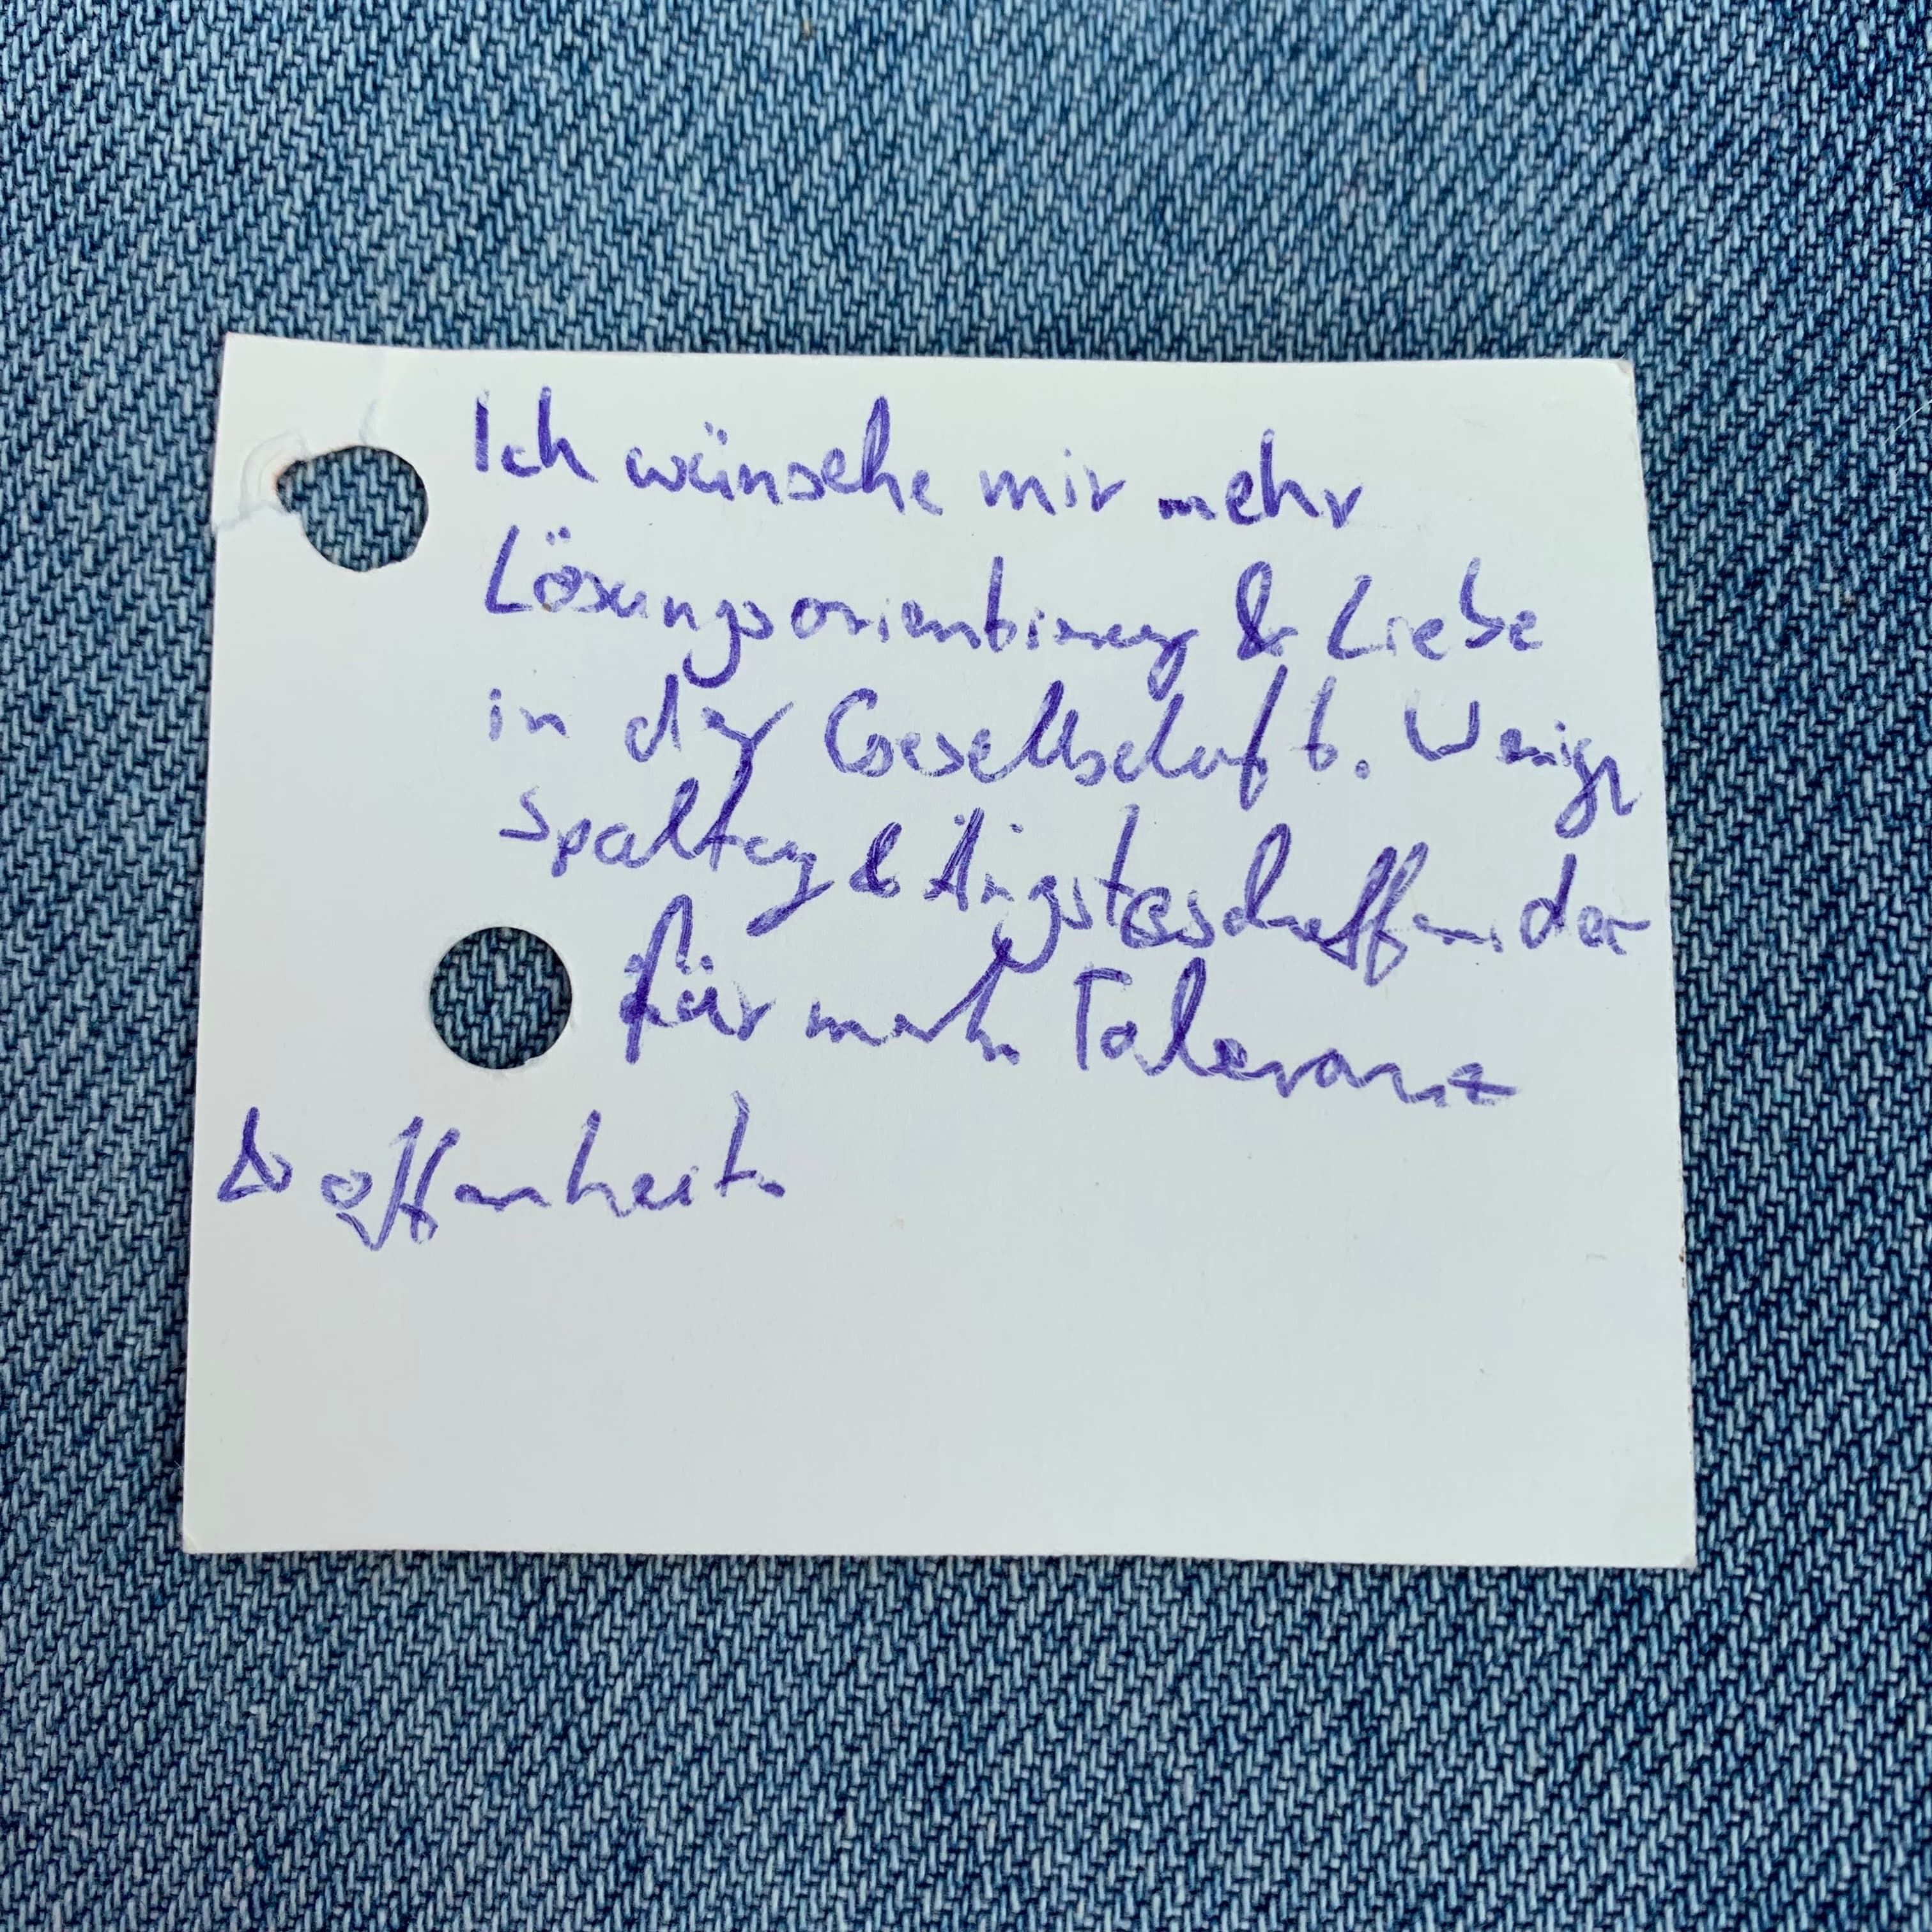 Ich wünsche mir mehr
Lösungsorientierung & Liebe
in der Gesellschaft. Weniger
Spaltung & Ängsteschaffen. dar
für mehr Toleranz
& offenheit.